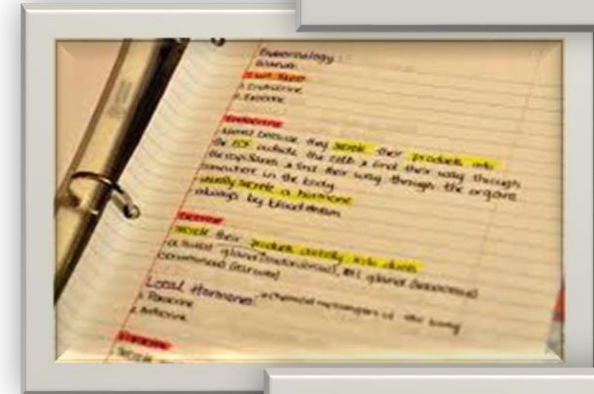 Endocrinology:
Glands
2 main types
1. Endocrine
2. Exocrine
Endocrine
because they secrete their products into
the ECF outside the cells & find their way through
the capillaries & find their way through the organs
somewhere in the body
usually secrete a hormone
always by bloodstream
Exocrine
secrete their products directly into ducts
a. sweat glands
Local Hormones: chemical messengers of the body
1. Paracrine
2. Autocrine